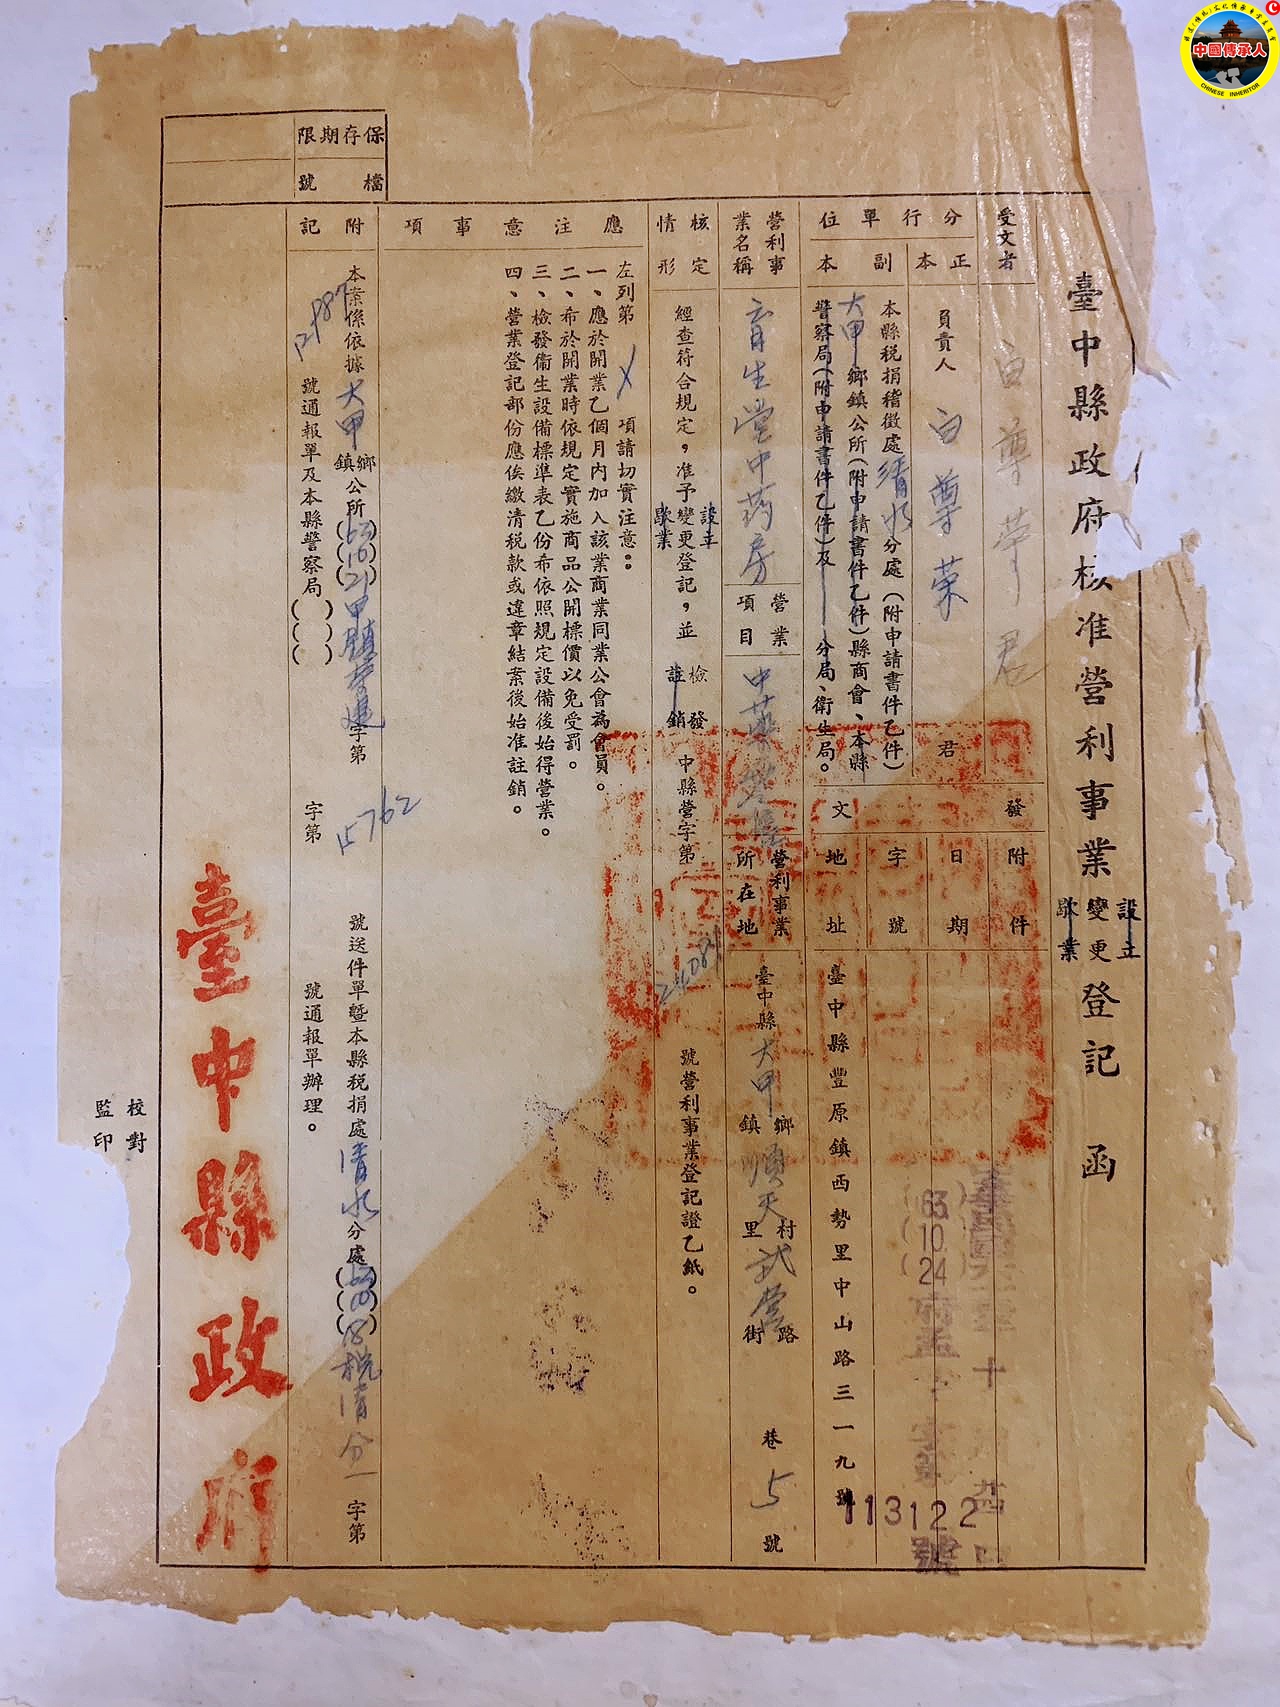 中國傳承人
CHINESE INHERITOR
保存期限
檔號
臺中縣政府核准營利事業
設立
變更
歇業
登記函
受文者
白尊榮君
分行單位
正本
負責人 白尊榮 君
副本
本縣稅捐稽徵處清水分處(附申請書件乙件)
大甲鄉鎮公所(附申請書件乙件)縣商會、本縣
警察局(附申請書件乙件)及 分局、衛生局。
發文
附件
日期
中華民國六十三年十月廿四日
字號
63 10 24 府孟 字第 113122 號
地址
臺中縣豐原鎮西勢里中山路三一九號
營利事業名稱
育生堂中药房
營業項目
中藥
營利事業所在地
臺中縣大甲鄉鎮順天村里武營路街 巷5號
核定情形
經查符合規定，准予
設立
變更
歇業
登記，並
檢發
註銷
中縣營字第
號營利事業登記證乙紙。
應注意事項
左列第 項請切實注意：
一、應於開業乙個月內加入該業商業同業公會為會員。
二、希於開業時依規定實施商品公開標價以免受罰。
三、檢發衛生設備標準表乙份希依照規定設備後始得營業。
四、營業登記部份應俟繳清稅款或違章結案後始准註銷。
附記
本案係依據大甲鄉鎮公所(63)(10)(21)甲鎮 建字第15762號送件單暨本縣稅捐處清水分處(63)(10)(18)稅清分一字第
號通報單及本縣警察局( )( )( ) 字第 號通報單辦理。
臺中縣政府
校對
監印